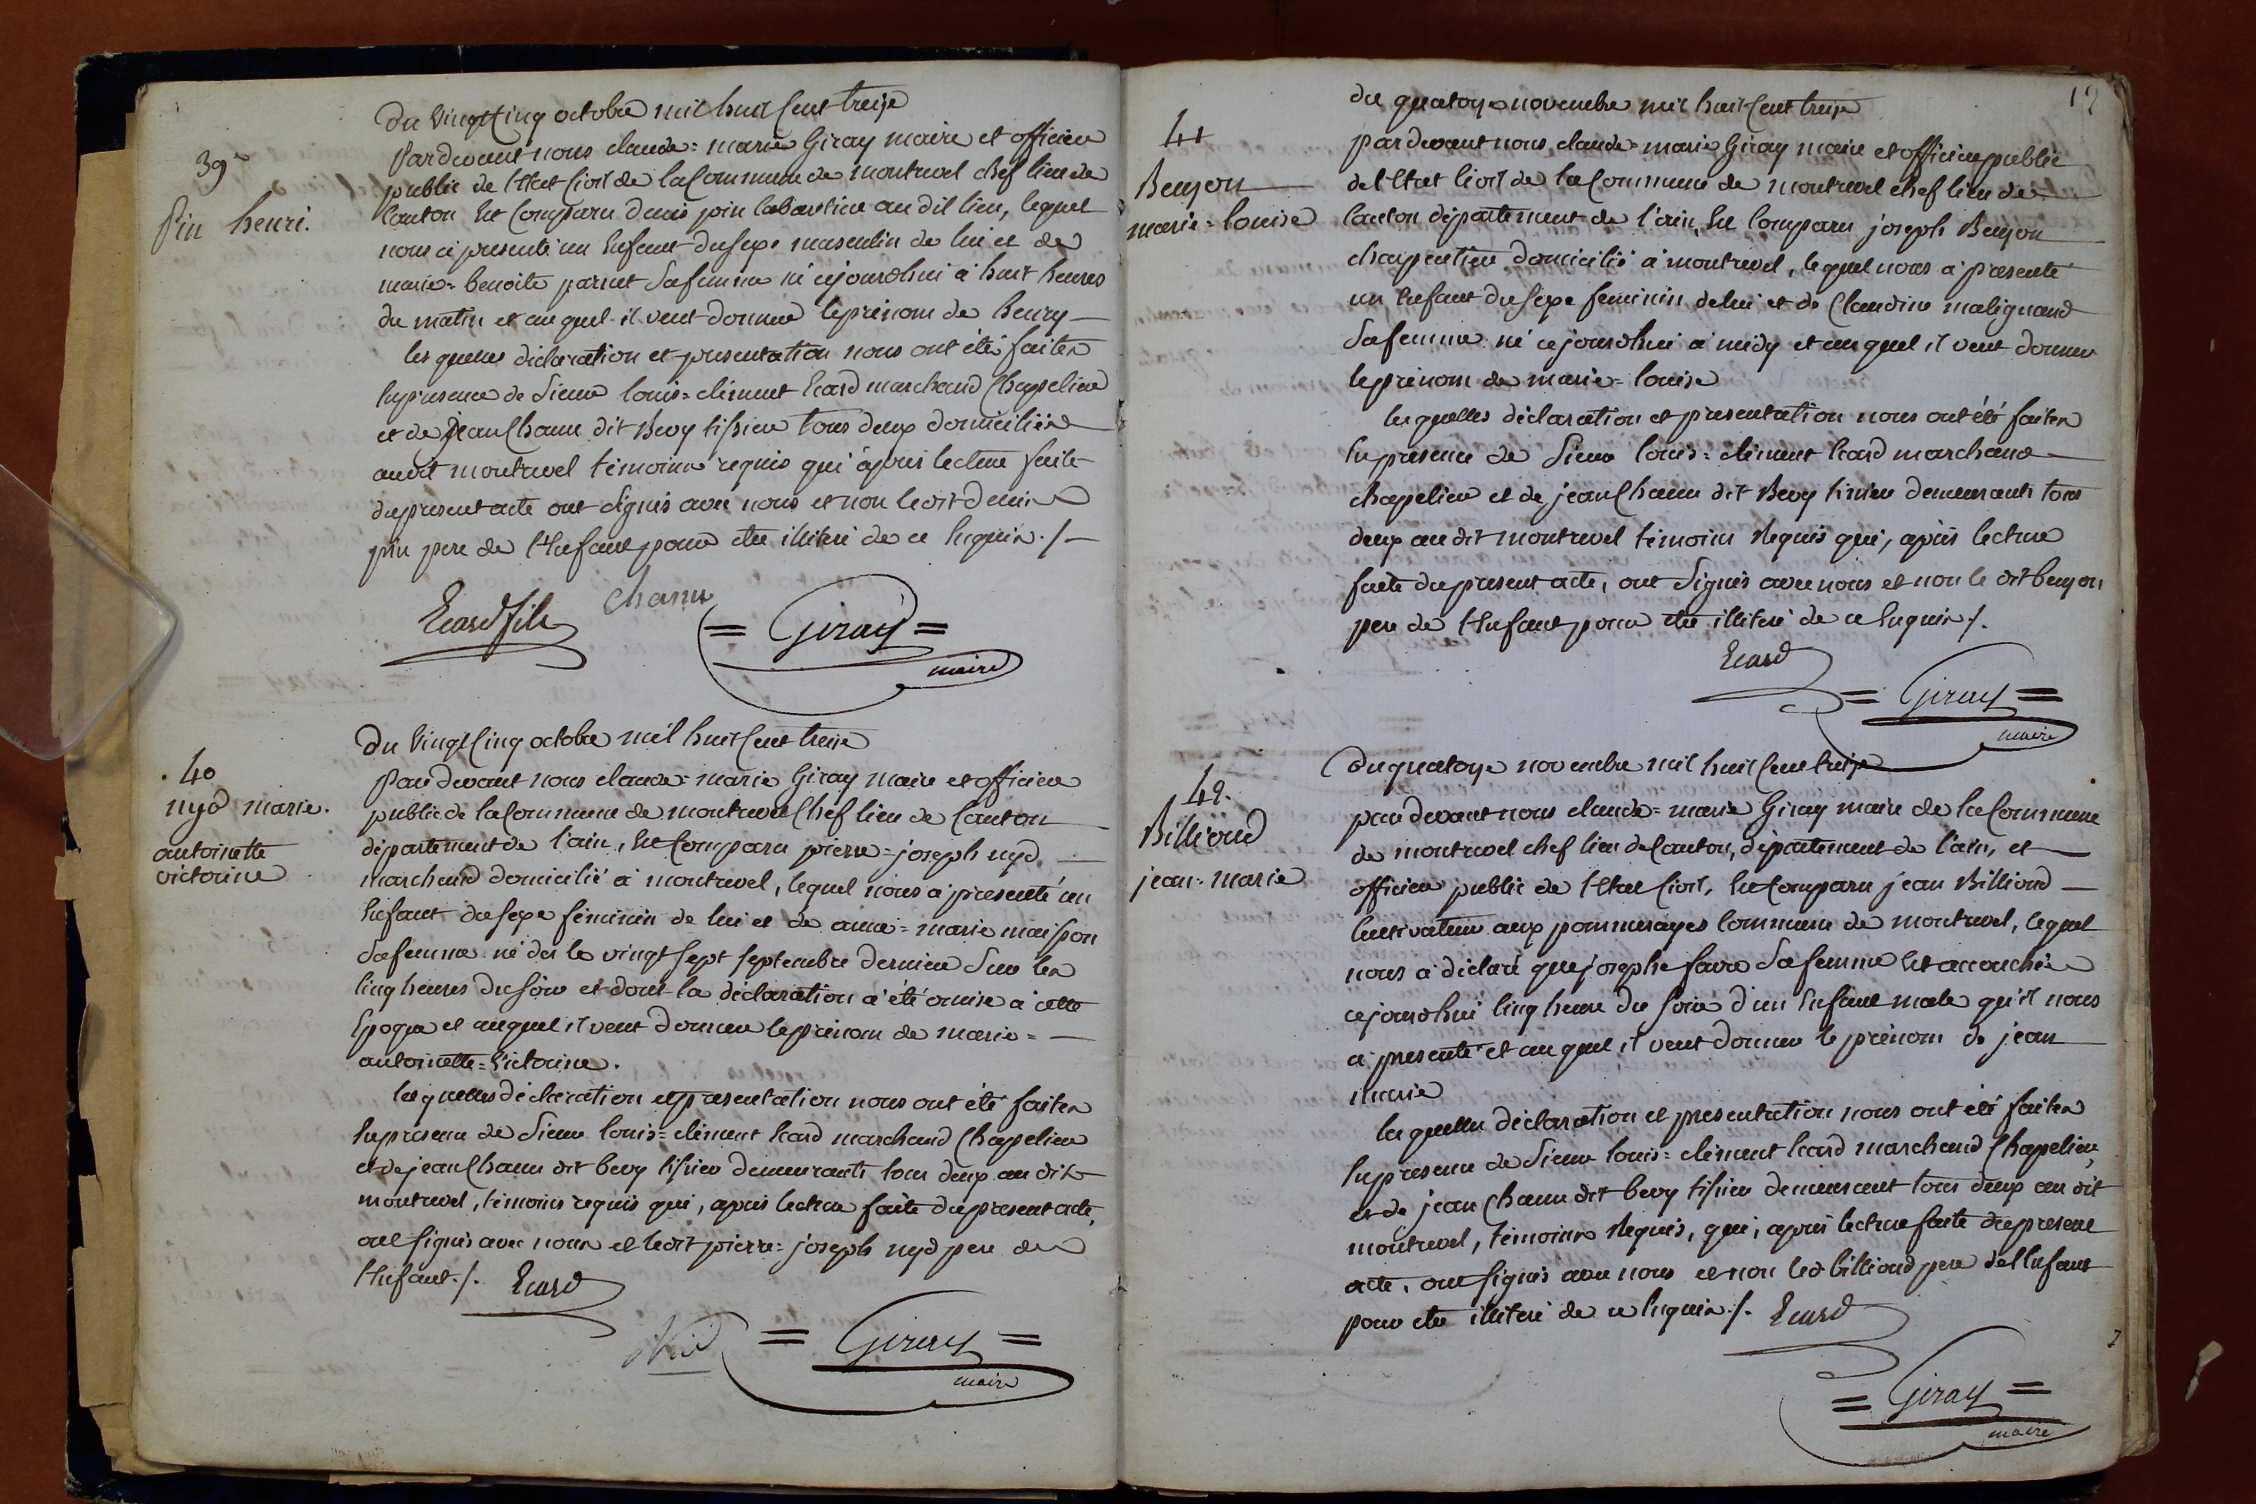 39e
Pin henri.
Du vingt Cinq octobre mil huit Cent treize
Pardevant nous claude = marie Giray maire et officier
public de l'Etat Civil de la Commune de montrevel chef lieu de
Canton Est Comparu denis pin cabartier au dit lieu, lequel
nous a presenté un Enfant du sexe masculin de lui et de
marie = benoite parnet sa femme né cejourdhui à huit heures
du matin et auquel il veut donner le prénom de henry
les quelles déclaration et presentation nous ont été faites
En presence de Sieur louis = clément Ecard marchand Chapelier
et de jean Chanu dit Bevy tissier tous deux domiciliés
audit montrevel témoins requis qui après lecture faite
du present acte ont signés avec nous et non ledit denis
pin pere de l'Enfant pour être illiteré de ce Enquis ./.
Ecard fils
Chanu
= Giray =
maire
40
nyd marie.
antoinette
victorine
Du vingt Cinq octobre mil huit Cent treize
Pardevant nous claude = marie Giray maire et officier
public de la Commune de montrevel Chef lieu de Canton
département de l'ain, Est Comparu pierre = joseph nyd
marchand domicilié à montrevel, lequel nous a presenté un
Enfant du sexe féminin de lui et de anne = marie maisson
sa femme né dès le vingt sept septembre dernier sur les
Cinq heures du soir et dont la déclaration a été omise à cette
Epoque et auquel il veut donner le prénom de marie =
antoinette = Victorine.
les quelles déclaration et presentation nous ont été faites
En presence de Sieur louis = clément Ecard marchand Chapelier
et de jean Chanu dit bevy tissier demeurants tous deux au dit
montrevel, témoins requis qui, après lecture faite du present acte,
ont signés avec nous et ledit pierre = joseph nyd pere de
l'Enfant ./.
Ecard
Nid
= Giray =
maire
12
41
Benjon
marie = louise
du quatorze novembre mil huit Cent treize
pardevant nous claude = marie Giray maire et officier public
de l'Etat Civil de la Commune de montrevel chef lieu de
Canton département de l'ain, Est Comparu joseph Benjon
charpentier domicilié à montrevel, lequel nous a presenté
un Enfant du sexe feminin de lui et de Claudine malignand
sa femme né cejourdhui à midy et auquel il veut donner
le prénom de marie = louise
les quelles déclaration et presentation nous ont été faites
En presence de Sieur louis = clément Ecard marchand
chapelier et de jean Chanu dit Bevy tissier demeurants tous
deux au dit montrevel témoins Requis qui, après lecture
faite du present acte, ont signés avec nous et non le dit benjon
pere de l'Enfant pour être illiteré de ce Enquis ./.
Ecard
= Giray =
maire
42.
Billioud
jean = marie
Du quatorze novembre mil huit Cent treize
pardevant nous claude = marie Giray maire de la Commune
de montrevel chef lieu de Canton, département de l'ain, et
officier public de l'Etat Civil, Est Comparu jean Billioud
Cultivateur aux pommerayes Commune de montrevel, lequel
nous a déclaré que josephe favre sa femme Est accouchée
cejourdhui Cinq heure du soir d'un Enfant male qu'il nous
a presenté et auquel il veut donner le prénom de jean
marie
les quelles déclaration et presentation nous ont été faites
En presence de Sieur louis = clément Ecard marchand Chapelier,
et de jean Chanu dit bevy tissier demeurant tous deux au dit
montrevel, témoins Requis, qui, après lecture faite du present
acte, ont signés avec nous et non led billioud pere de l'Enfant
pour être illiteré de ce Enquis ./.
Ecard
= Giray =
maire